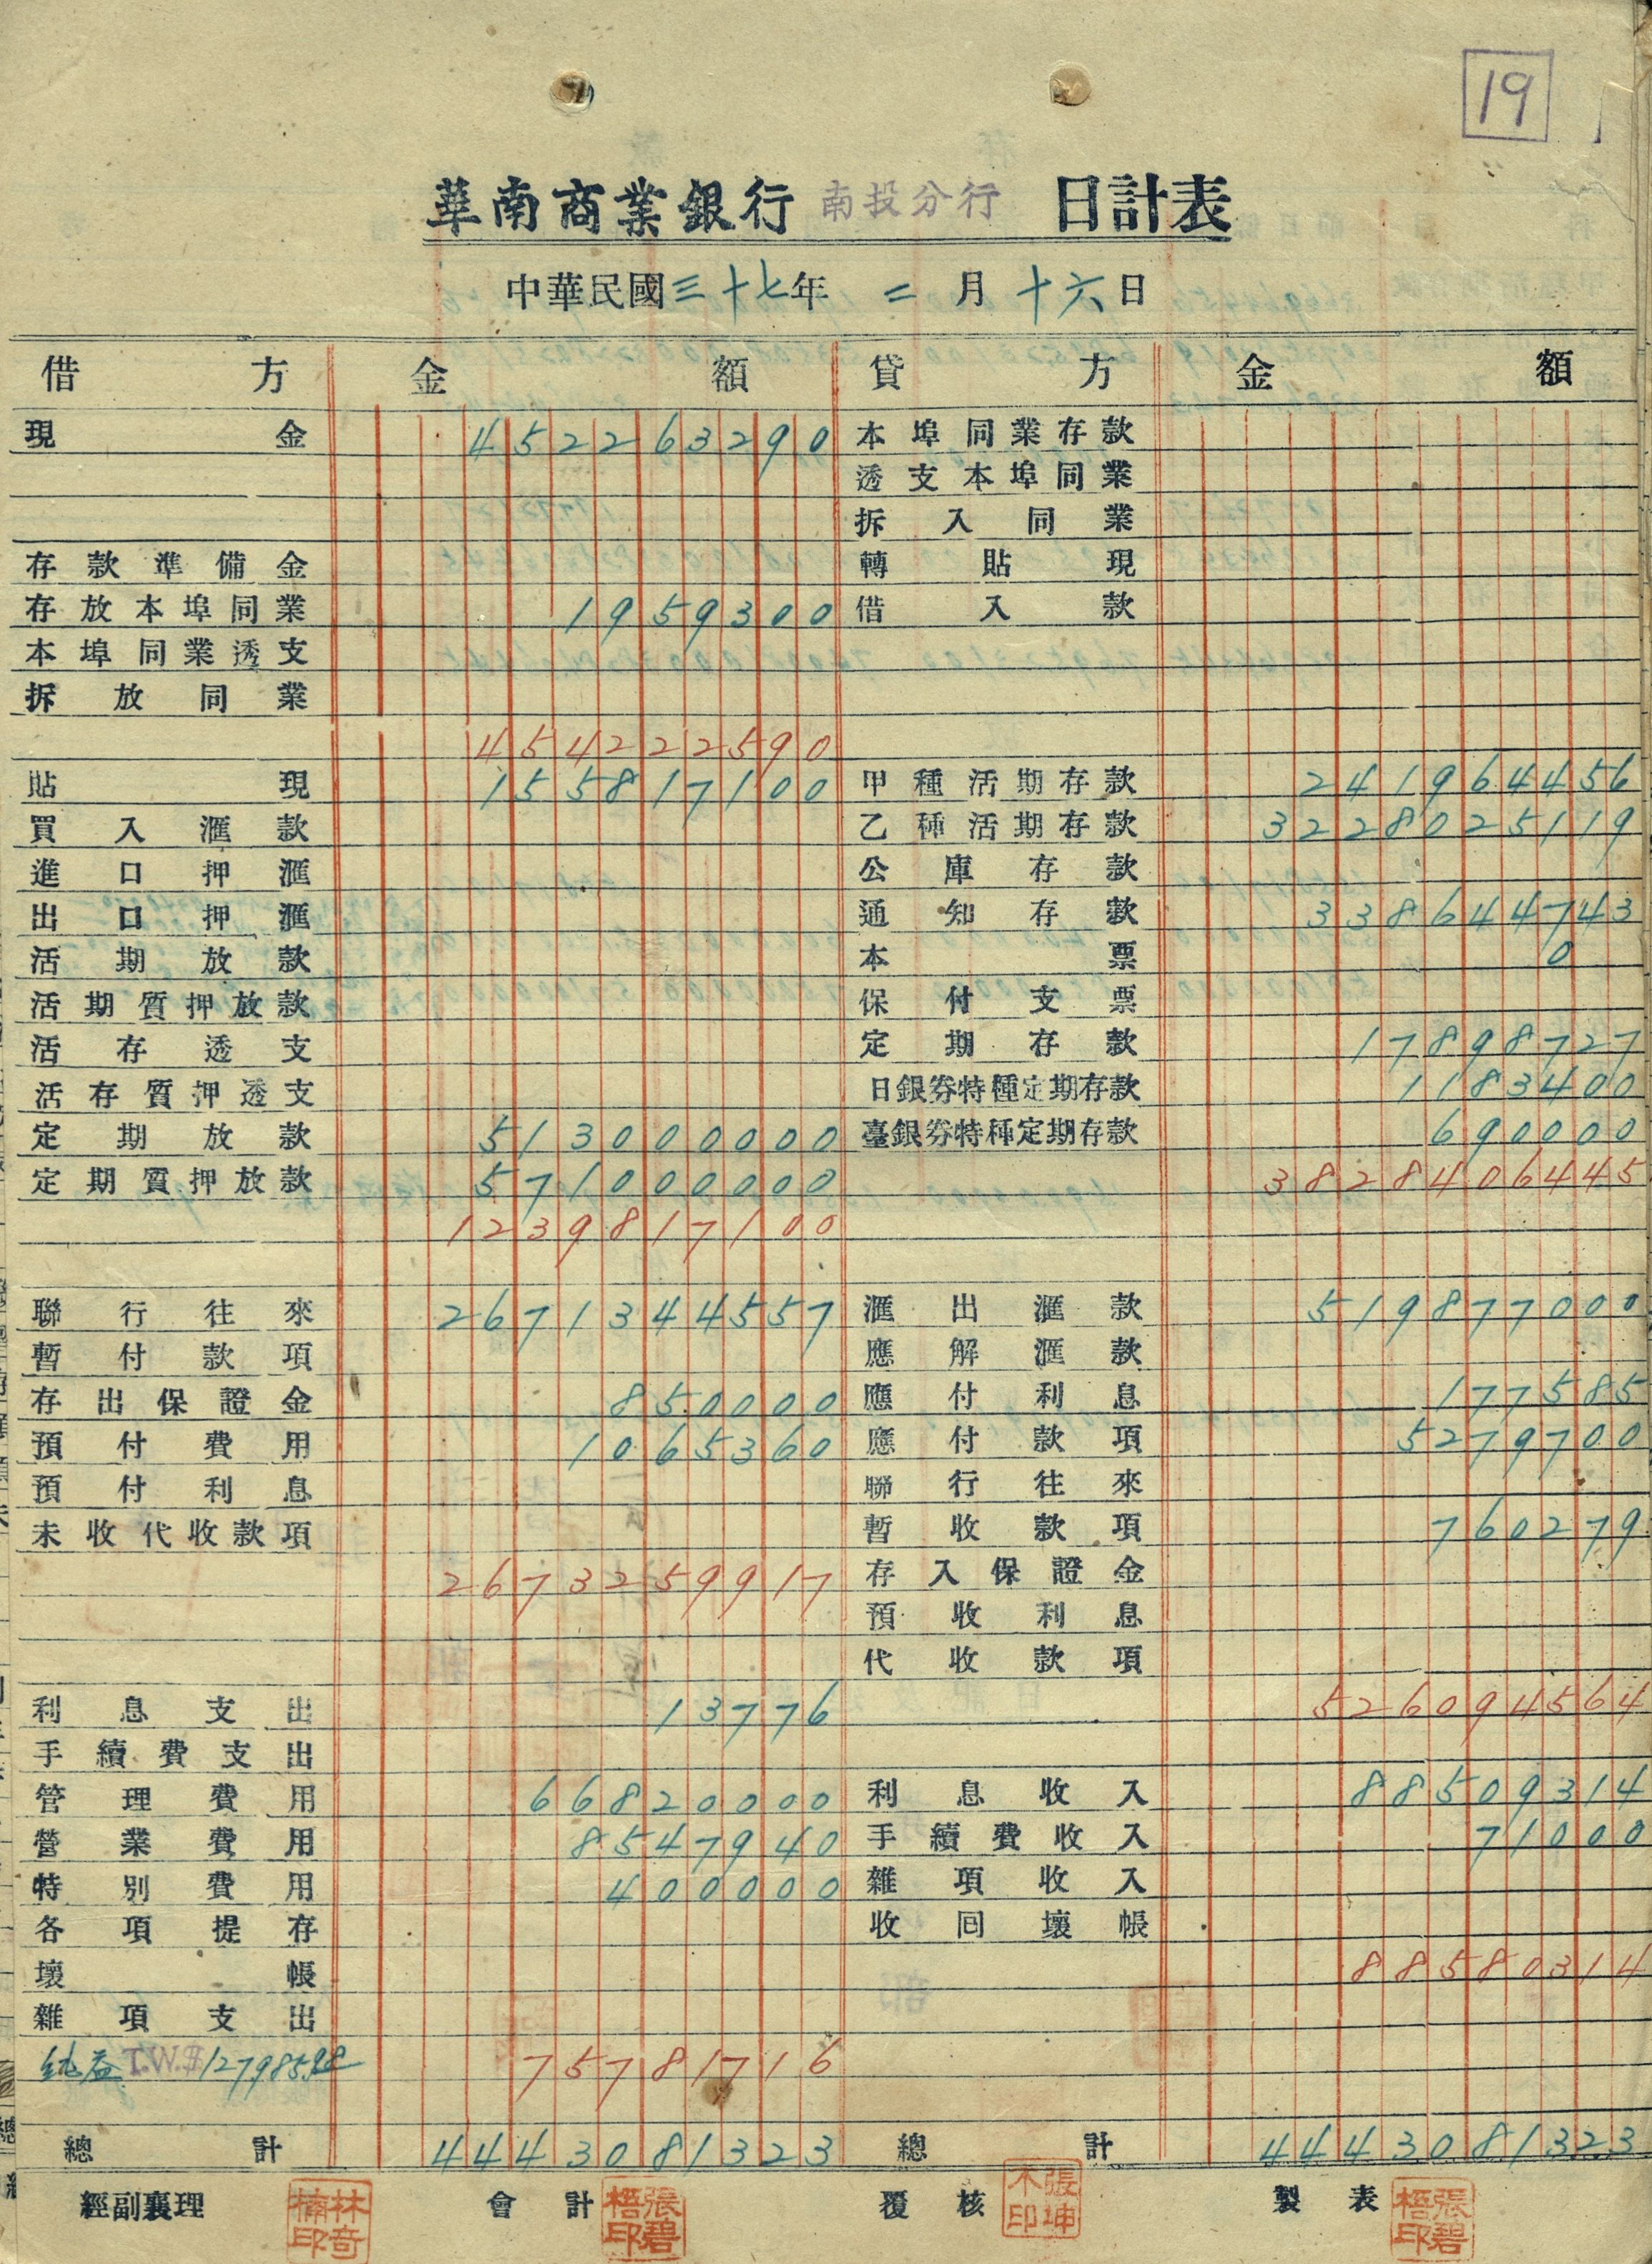 19
華南商業銀行 南投分行 日計表
中華民國三十七年 二月十六日
借方 金額 貸方 金額
現金 452263290 本埠同業存款
透支本埠同業
拆入同業
存款準備金 轉貼現
存放本埠同業 1959300 借入款
本埠同業透支
拆放同業
454222590
貼現 155817100 甲種活期存款 241964456
買入滙款 乙種活期存款 3228025119
進口押滙 公庫存款
出口押滙 通知存款 338644743
活期放款 本票 0
活期質押放款 保付支票
活存透支 定期存款 17898727
活存質押透支 日銀券特種定期存款 1183400
定期放款 513000000 臺銀券特種定期存款 690000
定期質押放款 571000000 3828406445
1239817100
聯行往來 2671344557 滙出滙款 519877000
暫付款項 應解滙款
存出保證金 850000 應付利息 177585
預付費用 1065360 應付款項 5279700
預付利息 聯行往來
未收代收款項 暫收款項 760279
2673259917 存入保證金
預收利息
代收款項
利息支出 13776 526094564
手續費支出
管理費用 66820000 利息收入 88509314
營業費用 8547940 手續費收入 71000
特別費用 400000 雜項收入
各項提存 收回壞帳
壞帳 88580314
雜項支出
純益 T.W.$127985.98 75781716
總計 4443081323 總計 4443081323
經副襄理 林奇楠印 會計 張碧梧印 覆核 張坤木印 製表 張碧梧印